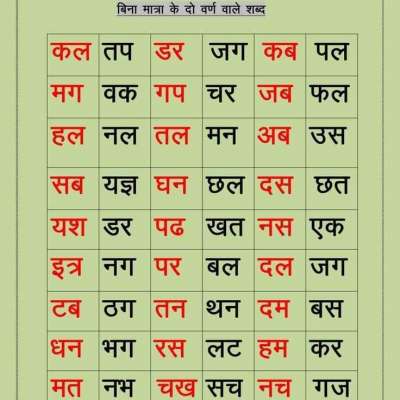 बिना मात्रा के दो वर्ण वाले शब्द
कल तप डर जग कब पल
मग वक गप चर जब फल
हल नल तल मन अब उस
सब यज्ञ घन छल दस छत
यश डर पढ खत नस एक
इत्र नग पर बल दल जग
टब ठग तन थन दम बस
धन भग रस लट हम कर
मत नभ चख सच नच गज